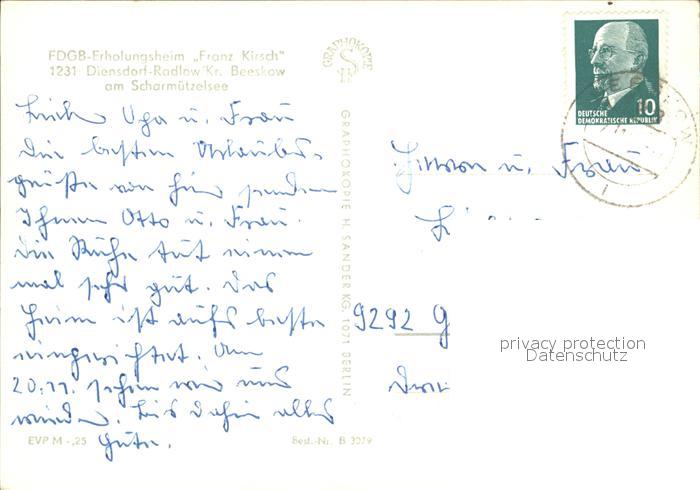 FDGB-Erholungsheim „Franz Kirsch"
1231 Diensdorf-Radlow Kr. Beeskow
am Scharmützelsee
u. Frau
Die besten Urlaubs-
grüße von hier senden
Ihnen Otto u. Frau.
Die Ruhe tut einem
mal sehr gut. Das
Heim ist aufs beste
eingerichtet. Am
20.11. sehen wir uns
wieder. Bis dahin alles
Gute.
EVP M -,25
Best.-Nr. B 3079
GRAPHOKOPIE
GRAPHOKOPIE H. SANDER KG 1071 BERLIN
10
DEUTSCHE
DEMOKRATISCHE REPUBLIK
u. Frau
9292 G
privacy protection
Datenschutz